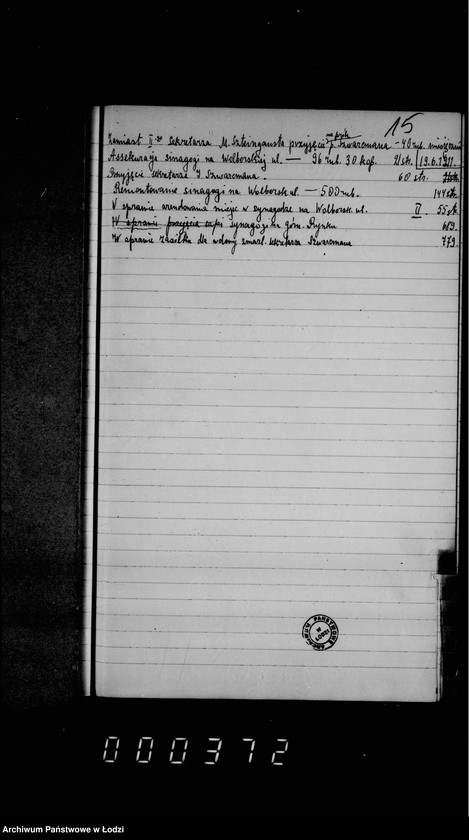 15
na próbę
Zamiast II go sekretarza M. Szteingausta przyjęcie p. Szwarcmana - 40 rub. miesięcznie
Assekuracja sinagogi na Wolborskiej ul. — 96 rub. 30 kop. 21 str. 19.6.1911.
Przyjęcie sekretarza J. Szwarcmana. 60 str.
Remontowanie sinagogi na Wolborsk. ul. — 500 rub. 144 str.
W sprawie arendowania miejsc w synagodze na Wolborsk. ul. II. 55 str.
W sprawie przyjęcia synagogi na Gorn. Rynku 663.
W sprawie zasiłku dla wdowy zmarł. sekretarza Szwarcmana 779.
ARCHIWUM PAŃSTWOWE
W
ŁODZI
000372
Archiwum Państwowe w Łodzi